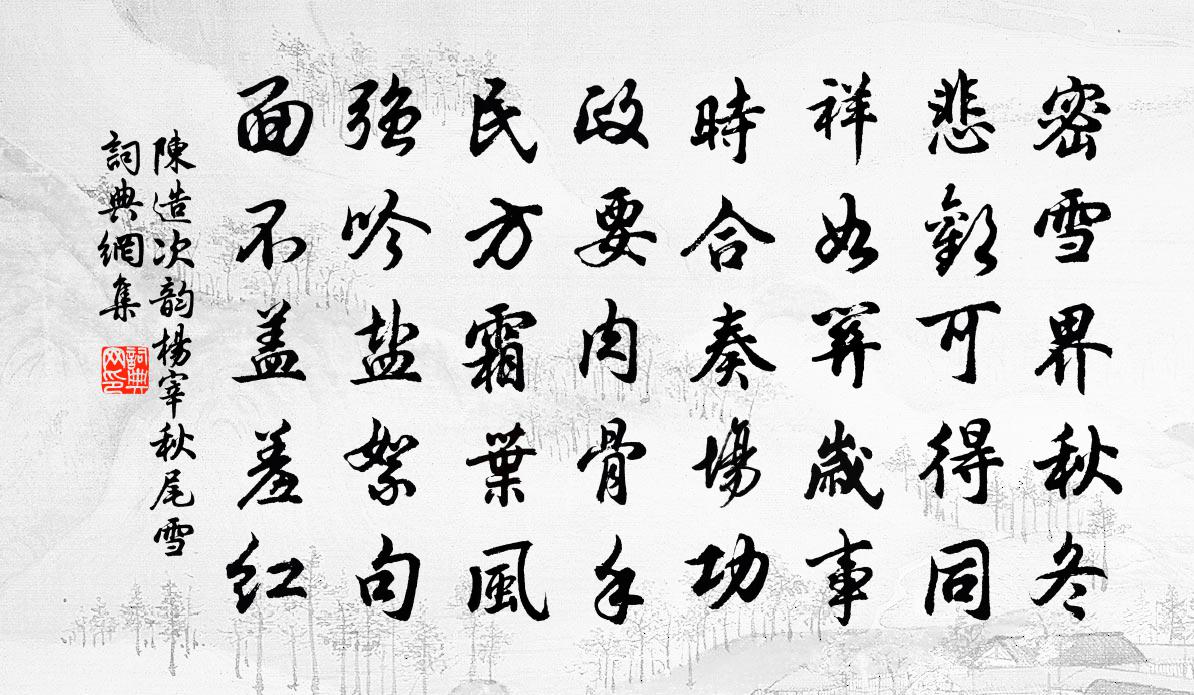 密雪界秋冬
悲歡可得同
祥如筭歲事
時合奏場功
政要肉骨手
民方霜葉風
強吟盐絮句
面不盖羞红
陳造次韵楊宰秋尾雪
詞典網集
詞典